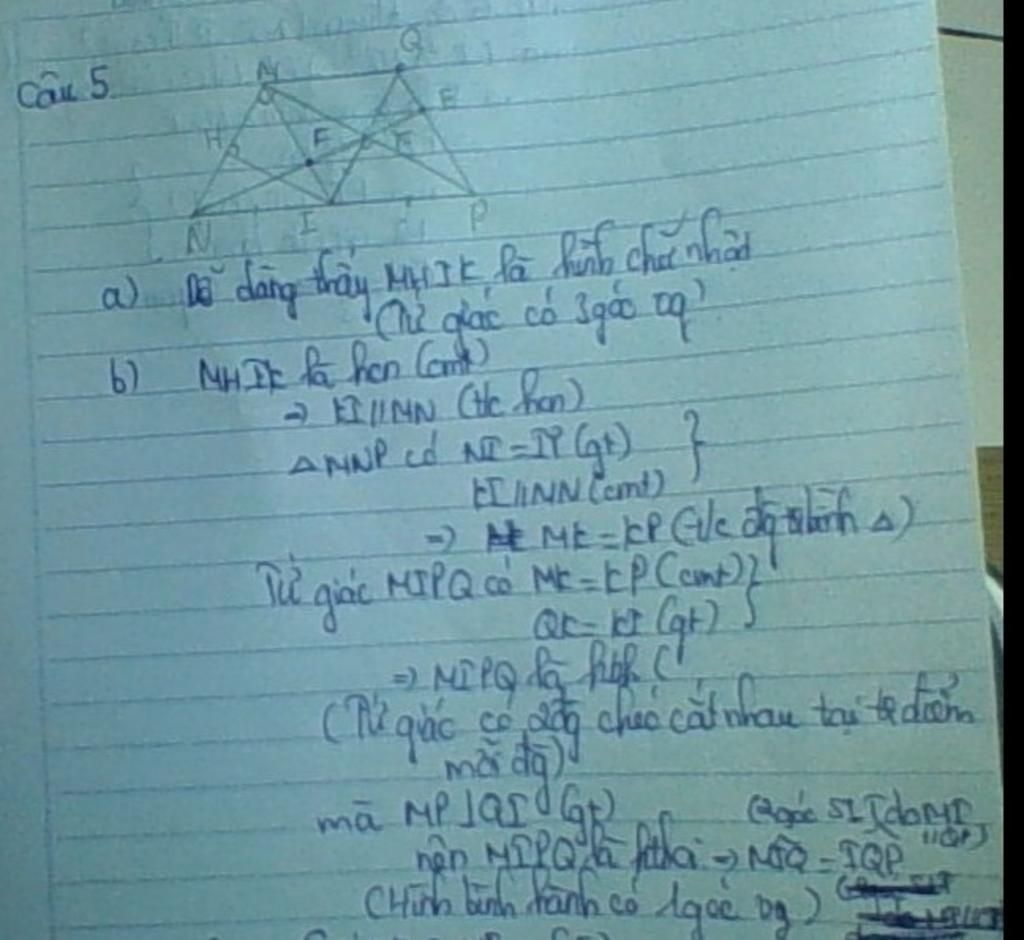 Câu 5
M Q
H F E
K
N I P
a) Dễ dàng thấy MHIK là hình chữ nhật
(Tứ giác có 3 góc vg)
b) MHIK là hcn (cmt)
⇒ KI // MN (t/c hcn)
△MNP có NI = IP (gt) }
KI // MN (cmt)
⇒ MK = KP (t/c đg tbình △)
Tứ giác MIPQ có MK = KP (cmt) }
QK = KI (gt)
⇒ MIPQ là hbh (
(Tứ giác có 2 đg chéo cắt nhau tại tđ điểm
mỗi đg)
mà MP ⊥ QI (gt) (2 góc SLT do MI
//QP)
nên MIPQ là hthoi ⇒ MIQ = IQP
(Hình bình hành có 1 góc vg)